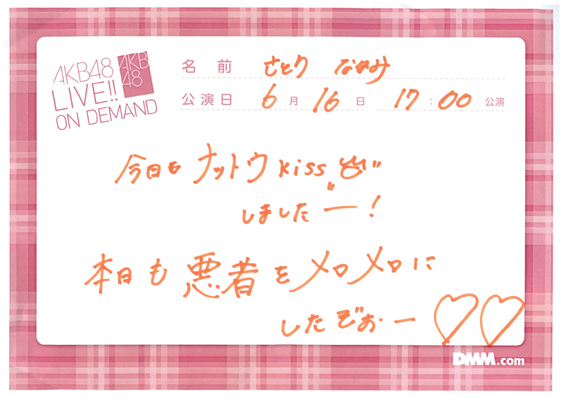 AKB48
LIVE!!
ON DEMAND
AKB
48
名前 さとう なつみ
公演日 6月16日 17:00公演
今日も ナットウkiss
しましたー!
本日も悪者をメロメロに
したぞぉーー♡♡
DMM.com